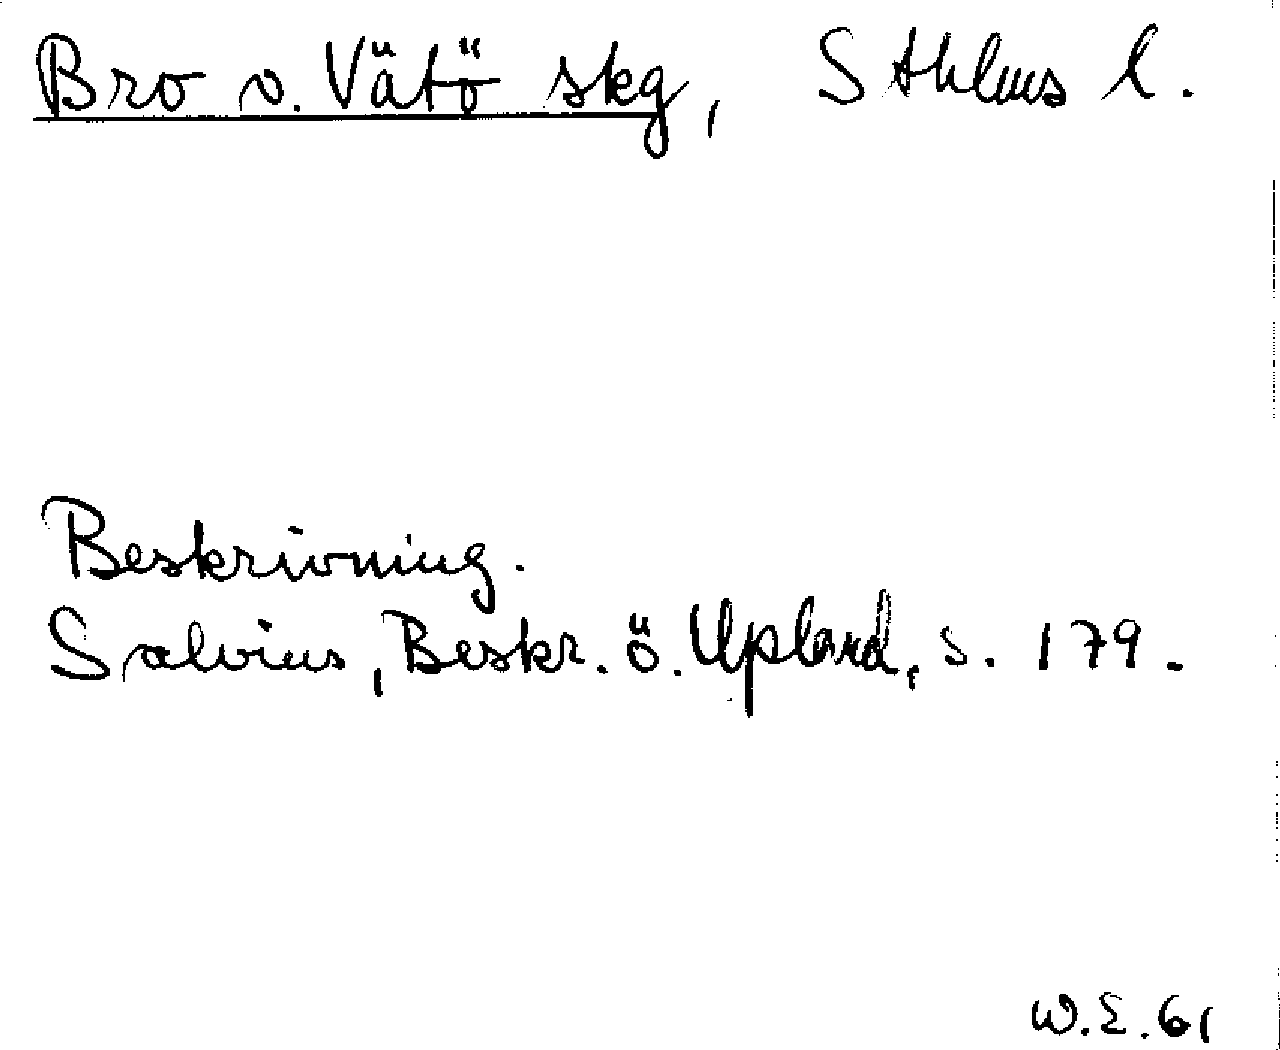 Bro o. Vätö skg, Sthlms l.
Beskrivning.
Salvius, Beskr. ö. Upland, s. 179.
W.E. 61